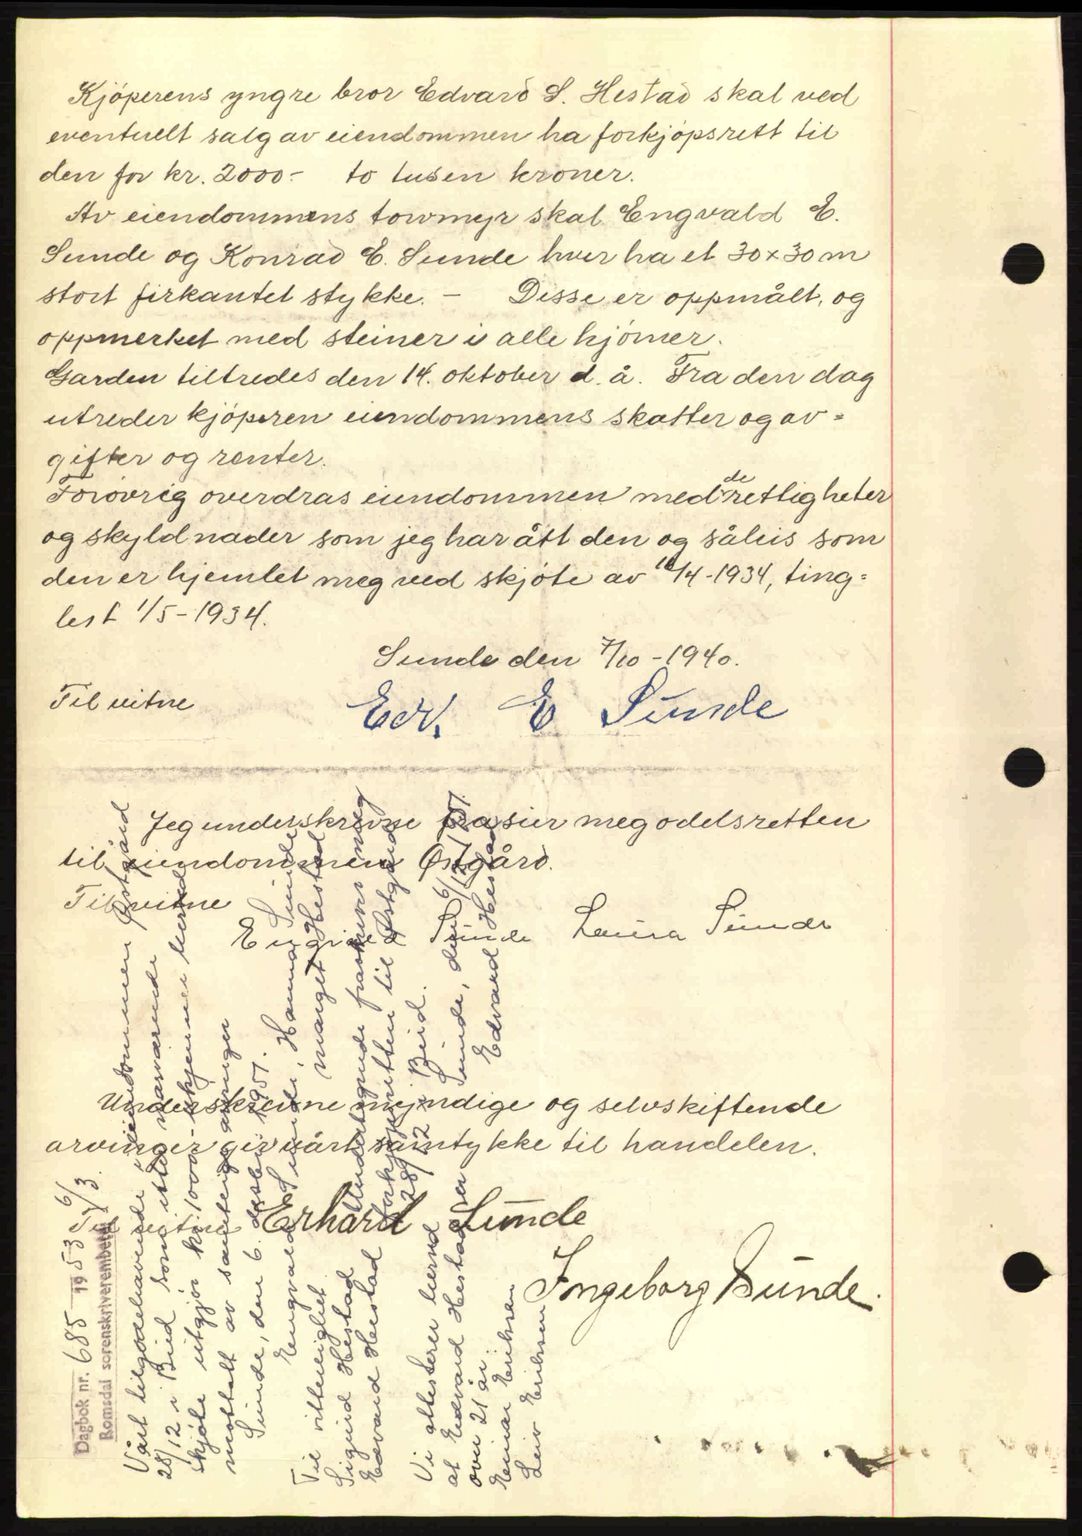 Kjöperens yngre bror Edvard S. Hestad skal ved
eventuelt salg av eiendommen ha forkjöpsrett til
den for kr. 2000.- to tusen kroner.
Av eiendommens torvmyr skal Engvald E.
Sunde og Konrad E. Sunde hver ha et 30 x 30 m
stort firkantet stykke. - Disse er oppmålt, og
oppmerket med steiner i alle hjörner.
Garden tiltredes den 14. oktober d. å. Fra den dag
utreder kjöperen eiendommens skatter og av=
gifter og renter.
Forövrig overdras eiendommen med de rettigheter
og skyldnader som jeg har ått den og såleis som
den er hjemlet meg ved skjöte av 18/4-1934, ting=
lest 1/5-1934.
Sunde den 7/10-1940.
Til vitne
Edv. E Sunde
Jeg underskrevne frasier meg odelsretten
til eiendommen Østgård.
Til vitne
Sunde Laura Sunde
Underskrevne myndige og selvskiftende
arvinger gir vårt samtykke til handelen.
Til vitne Erhard Sunde
Ingeborg Sunde.
Dagbok nr. 685 1953 6/3.
Romsdal sorenskriverembete
Vårt tilgodehavende i eiendommen Østgård
28/12 i Bud som etter nærværende
skjöte utgjör kr. 1000.- erkjennes herved
mottatt av samtlige arvinger
Sunde, den 6. desbr. 1951.
Engvald Sunde, Hanna Sunde
Til vitterlighet Marget Hestad
Sigurd Hestad
Edvard Hestad
Undertegnede fraskriver meg
forkjöpsretten til Østgård
28/12 i Bud.
Sunde, den 6/12 1951.
Edvard Hestad
Vi attesterer herved
at Edvard Hestad er
over 21 år.
Einar Eriksen
Leiv Eriksen